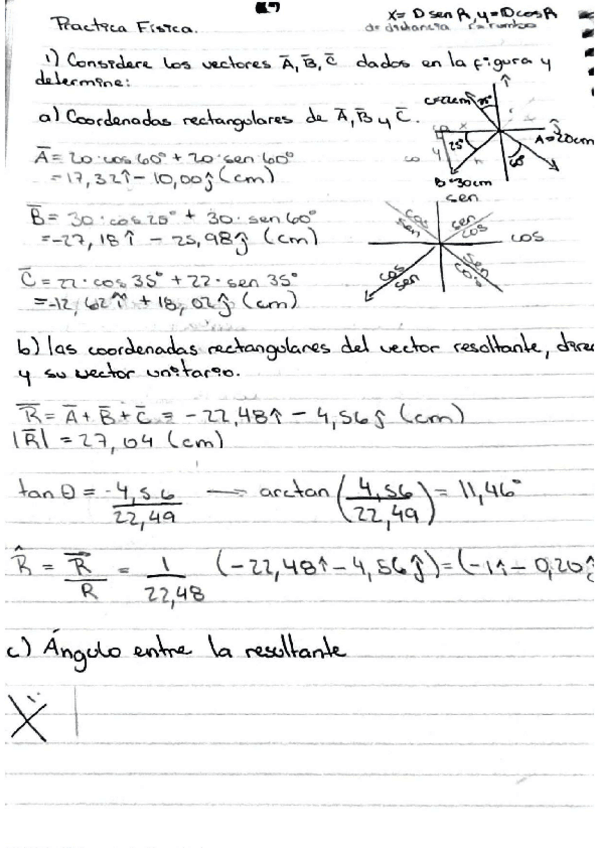 Practica Física.
x= D sen A, y=D cos A
de distancia
1) Considere los vectores A̅, B̅, C̅ dados en la figura y
determine:
a) Coordenadas rectangulares de A̅, B̅ y C̅.
C=22cm 35°
ĵ
î
25°
A=20cm
60°
B=30cm
A̅ = 20·cos 60° + 20·sen 60°
= 17,32î - 10,00ĵ (cm)
B̅ = 30·cos 25° + 30·sen 60°
= -27,18î - 25,98ĵ (cm)
C̅ = 22·cos 35° + 22·sen 35°
= -12,62î + 18,02ĵ (cm)
sen
cos
sen
sen
cos
cos
cos
sen
sen
cos
b) las coordenadas rectangulares del vector resoltante, direc
y su vector unitario.
R̅ = A̅ + B̅ + C̅ = -22,48î - 4,56ĵ (cm)
|R̅| = 27,04 (cm)
tan θ = -4,56/22,49 → arctan(4,56/22,49) = 11,46°
R̂ = R⃗/R = 1/22,48 (-22,48î - 4,56ĵ) = (-1î - 0,20ĵ
c) Ángulo entre la resultante